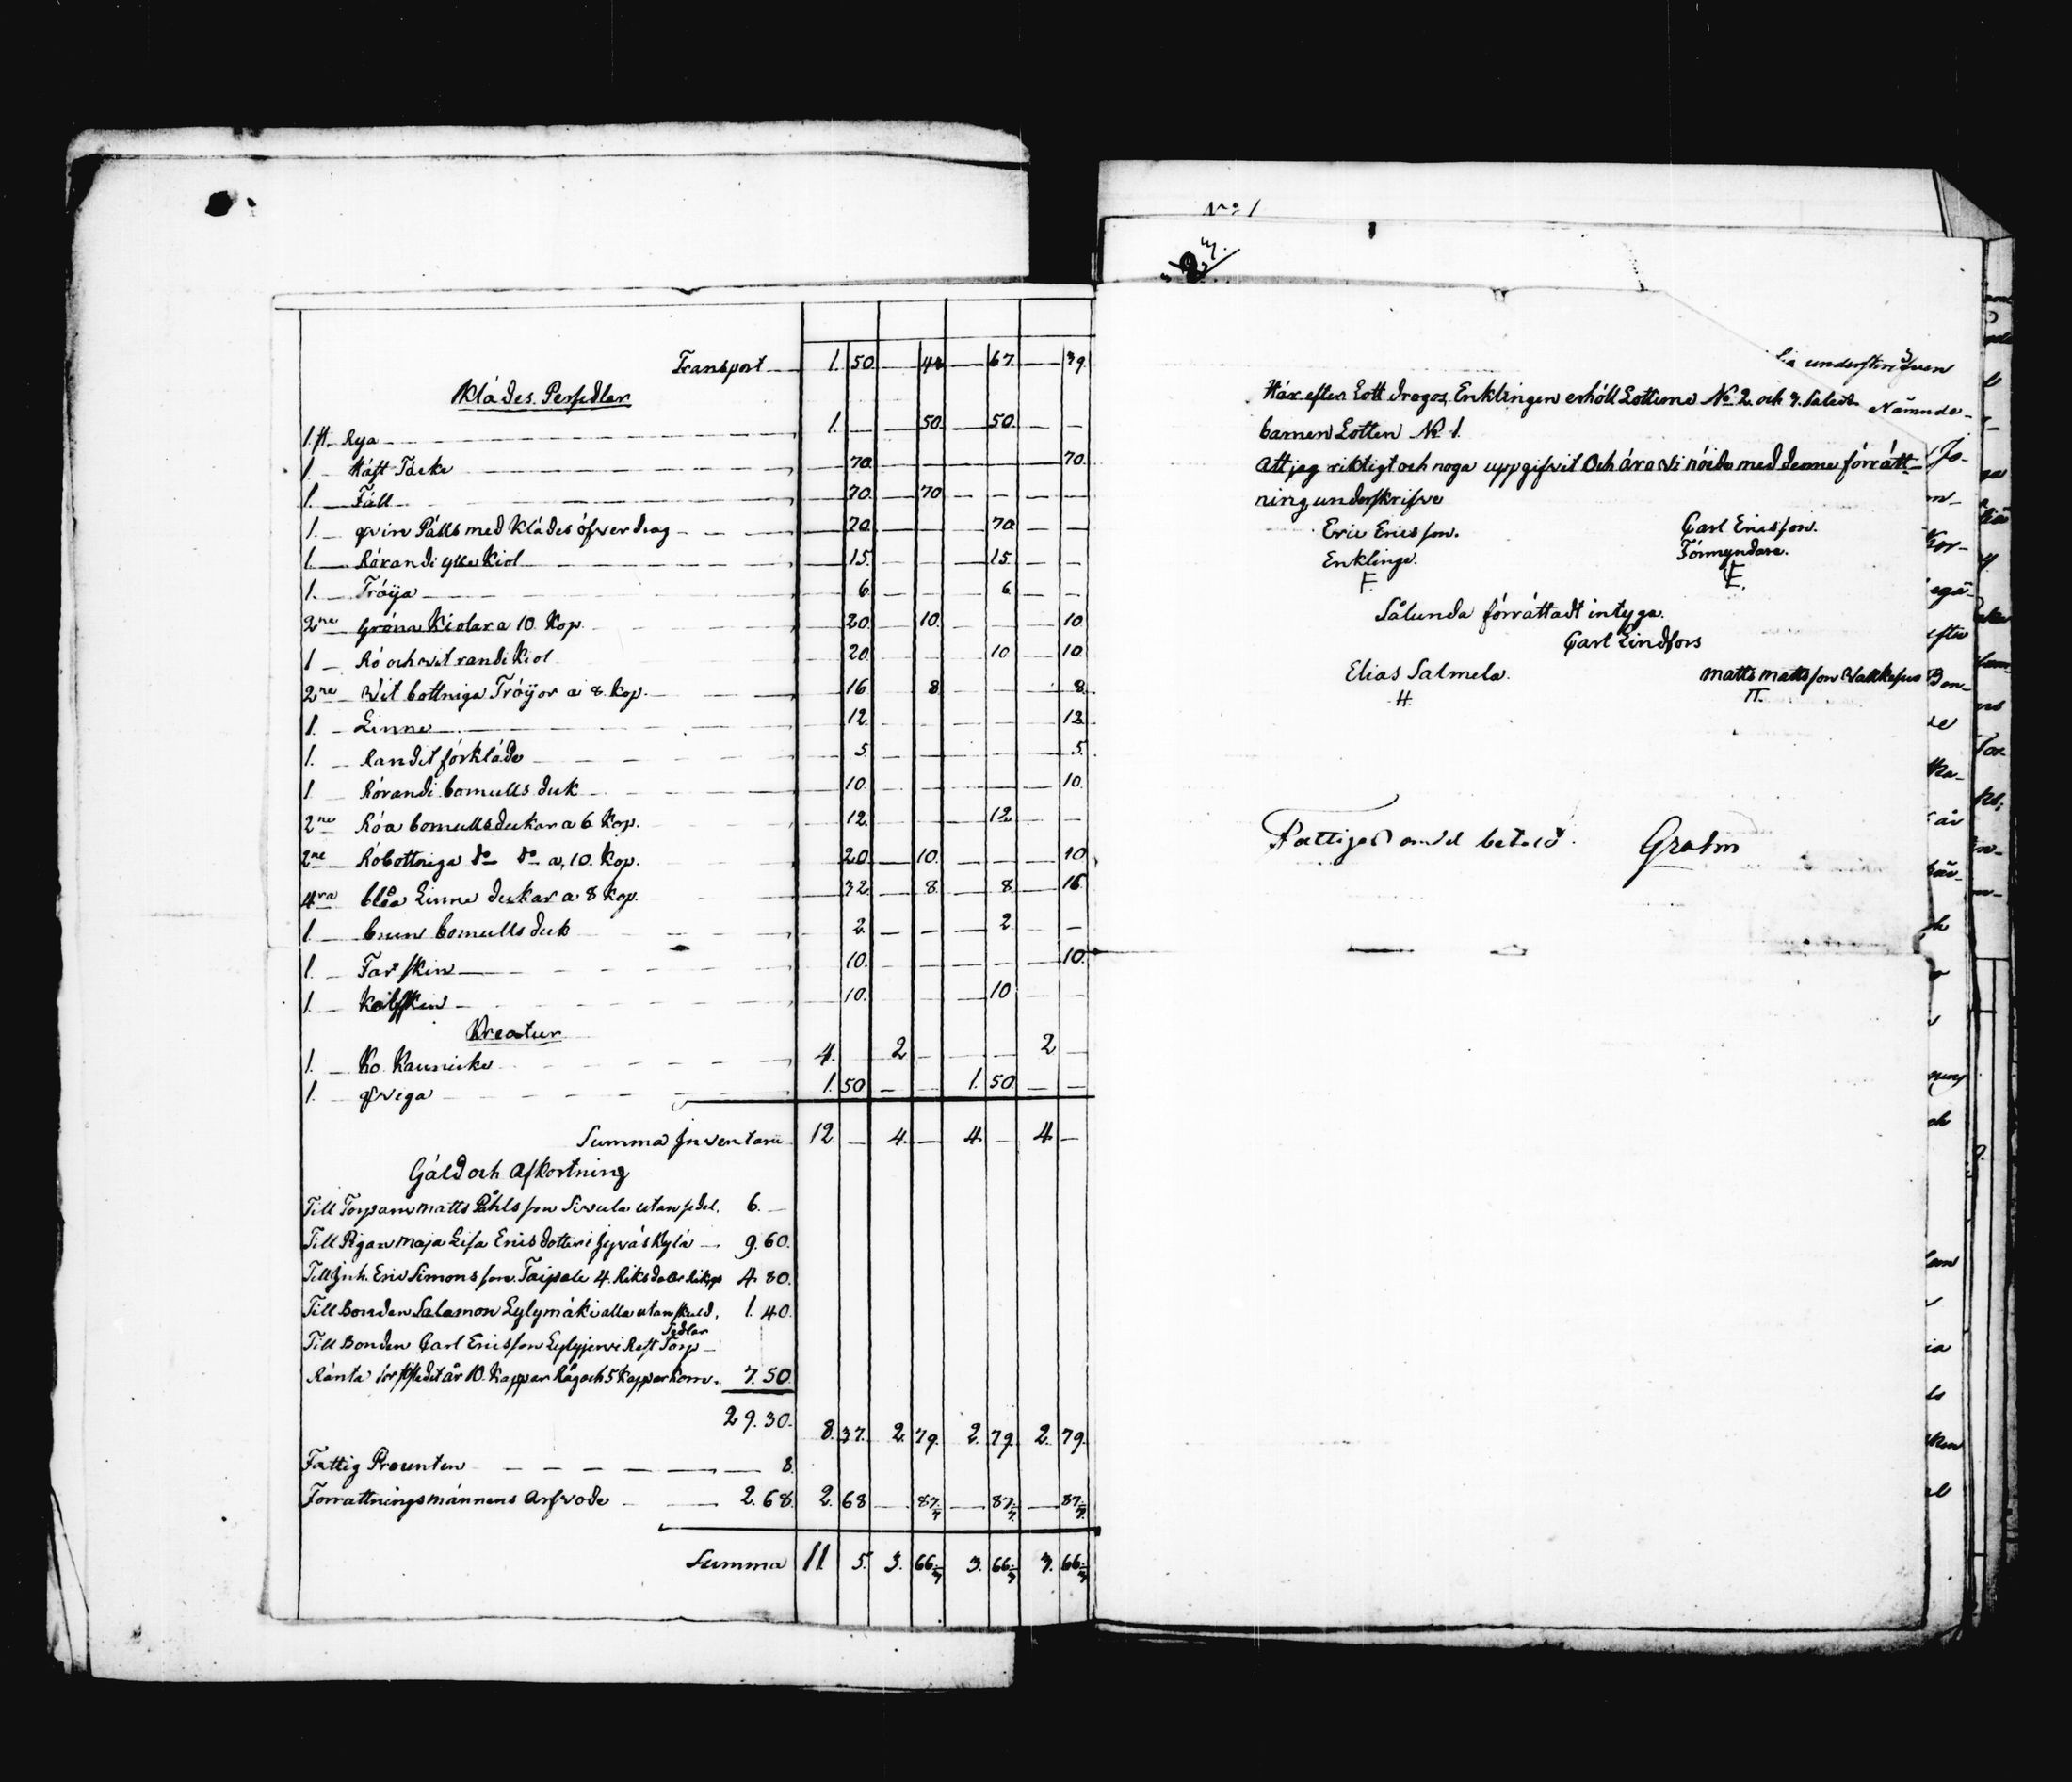 Transport 1. 50. — 43 — 67. — 39.
Klädes Persedlar
1. st. Rya 1. — — 50. — 50. — —
1. Häst Täcke — 70. — — — — — 70.
1. Fäll — 70. — 70 — — — —
1. qvin Pälls med Klädes öfverdrag — 70. — — — 70 — —
1. Rörandi ylle Kiol — 15. — — — 15. — —
1. Tröija — 6. — — — 6. — —
2ne Gröna Kiolar a 10. Kop. — 20. — 10. — — — 10.
1 Rö och vit randi Kiol — 20. — — — 10. — 10.
2ne Vit bottniga Tröijor a 8. Kop. — 16. — 8. — — — 8.
1. Linne — 12. — — — — — 12.
1. Randit förkläde — 5. — — — — — 5.
1. Rörandi bomulls duk — 10. — — — — — 10.
2ne Röa bomullsdukar a 6 Kop. — 12. — — — 12. — —
2ne Röbottniga do do a, 10. Kop. — 20. — 10. — — — 10.
4ra blåa Linne dukar a 8 Kop. — 32. — 8. — 8. — 16.
1. brun bomulls duk — 2. — — — 2. — —
1. Får skin — 10. — — — — — 10.
1. Kalfskin — 10. — — — 10 — —
Kreatur
1. Ko Kaunicke 4. — 2 — — — 2 —
1. qviga 1. 50 — — 1. 50. — —
Summa Inventarii 12. — 4. — 4. — 4 —
Gäld och Afkortning
Till Torparn Matts Påhlsson Sivula utan sedel. 6. —
Till Pigan Maja Lisa Ericsdotter i Jyväskylä — 9. 60.
Till Inh. Eric Simonsson Taipale 4. Riksdaler Riksgs 4. 80.
Till Bonden Salamon Lylymäki alla utan skuld, 1. 40.
Sedlar
Till Bonden Carl Ericsson Lylyjervi Rest Torp
Ränta 10. Kappar Råg och 5 Kappar Korn. 7. 50.
29. 30. 8. 37. 2. 79. 2. 79. 2. 79.
Fattig Procenten 8.
Forrattningsmännens Arfvode 2. 68. 2. 68 — 87 — 87 — 87
Summa 11. 5. 3. 66 3. 66 3. 66
No 1
underskrifven
Här efter Lott drogos, Enklingen erhöll Lotterne No 2. och 3. Samt Nämnde
barnen Lotten No 1.
Att jag riktigt och noga uppgifvit Och äro vi nöida med denne förrätt-
ning underskrifve
Eric Ericsson. Carl Ericsson.
Enklinge. Förmyndare.
Sålunda förrättadt intyga.
Carl Lindfors
Elias Salmela. Matts Mattsson
Fattiges andel betald. Grahn